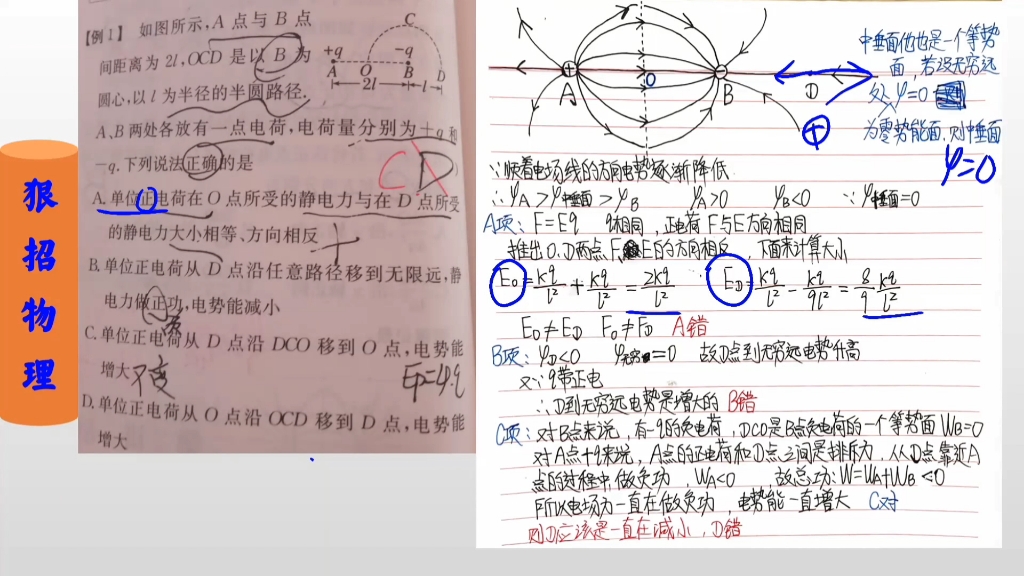 狠
招
物
理
【例1】 如图所示,A点与B点
间距离为2l,OCD是以B为
圆心,以l为半径的半圆路径.
A、B两处各放有一点电荷,电荷量分别为+q和
-q.下列说法正确的是
A.单位正电荷在O点所受的静电力与在D点所受
的静电力大小相等、方向相反
B.单位正电荷从D点沿任意路径移到无限远,静
电力做正功,电势能减小
C.单位正电荷从D点沿DCO移到O点,电势能
增大
D.单位正电荷从O点沿OCD移到D点,电势能
增大
C
+q -q
A O B D
2l l
C D
O
不变
Ep=φ·q
A O B D
中垂面他也是一个等势
面,若设无穷远
处φ=0
为零势能面,则中垂面
φ=0
∵顺着电场线的方向电势逐渐降低
∴φA>φ中垂面>φB φA>0 φB<0 ∵φ中垂面=0
A项:F=Eq q相同,正电荷F与E方向相同
推出O.D两点F、E的方向相反 下面来计算大小
E₀=kq/l²+kq/l²=2kq/l² E_D=kq/l²-kq/9l²=8/9 kq/l²
E₀≠E_D F₀≠F_D A错
B项:φD<0 φ无穷=0 故D点到无穷远电势升高
又∵q带正电
∴D到无穷远电势是增大的 B错
C项:对B点来说,有-q的负电荷,DCO是B点负电荷的一个等势面 W_B=0
对A点+q来说,A点的正电荷和D点之间是排斥力,从D点靠近A
点的过程中,做负功,W_A<0,故总功:W=W_A+W_B<0
所以电场力一直在做负功,电势能一直增大 C对
则D应该是一直在减小,D错